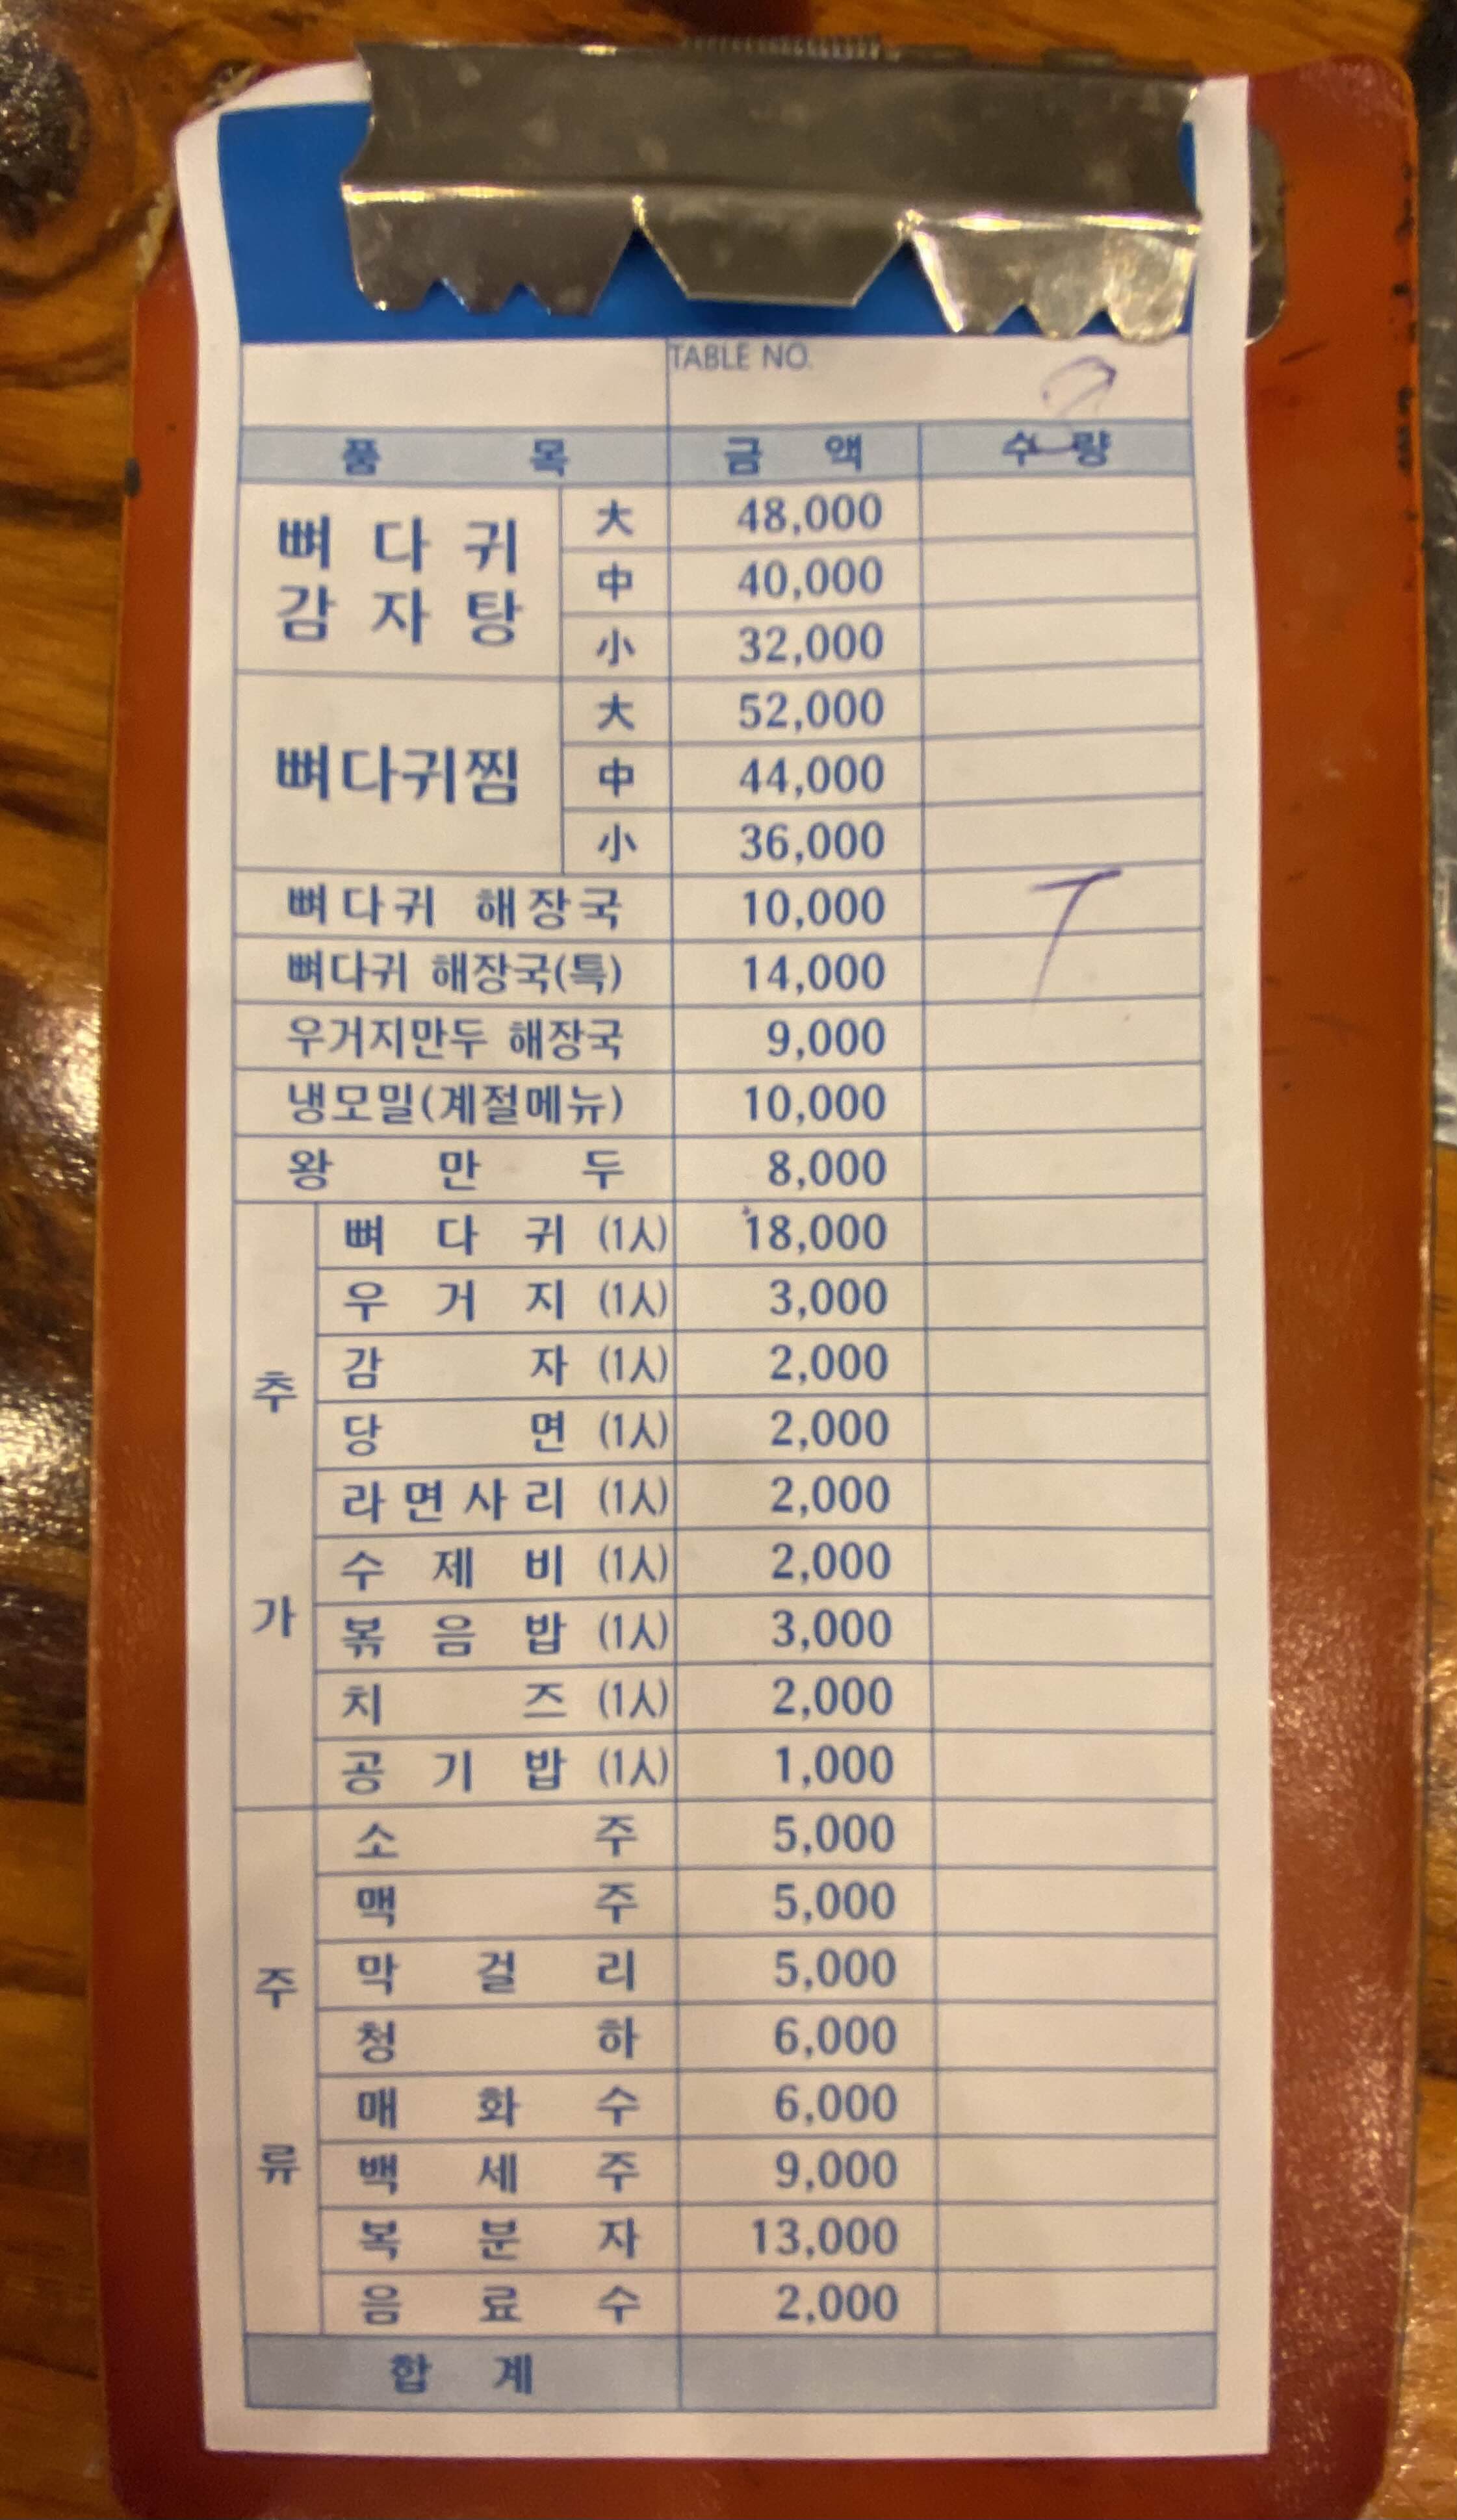 TABLE NO.
품 목 금 액 수 량
뼈 다 귀
감 자 탕
大 48,000
中 40,000
小 32,000
뼈다귀찜
大 52,000
中 44,000
小 36,000
뼈다귀 해장국 10,000
뼈다귀 해장국(특) 14,000
우거지만두 해장국 9,000
냉모밀(계절메뉴) 10,000
왕 만 두 8,000
추 가
뼈 다 귀 (1人) 18,000
우 거 지 (1人) 3,000
감 자 (1人) 2,000
당 면 (1人) 2,000
라면사리 (1人) 2,000
수 제 비 (1人) 2,000
볶 음 밥 (1人) 3,000
치 즈 (1人) 2,000
공 기 밥 (1人) 1,000
주 류
소 주 5,000
맥 주 5,000
막 걸 리 5,000
청 하 6,000
매 화 수 6,000
백 세 주 9,000
복 분 자 13,000
음 료 수 2,000
합 계